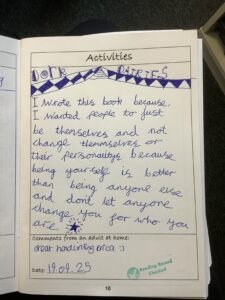 Activities
I wrote this book because,
I wanted people to just
be themselves and not
change themselves or
their personalitys because
being yourself is better
than being anyone else
and dont let anyone
change you for who you
are
Comments from an adult at home:
Great handwriting :)
Date: 19.09.25
Reading Record
Checked
10